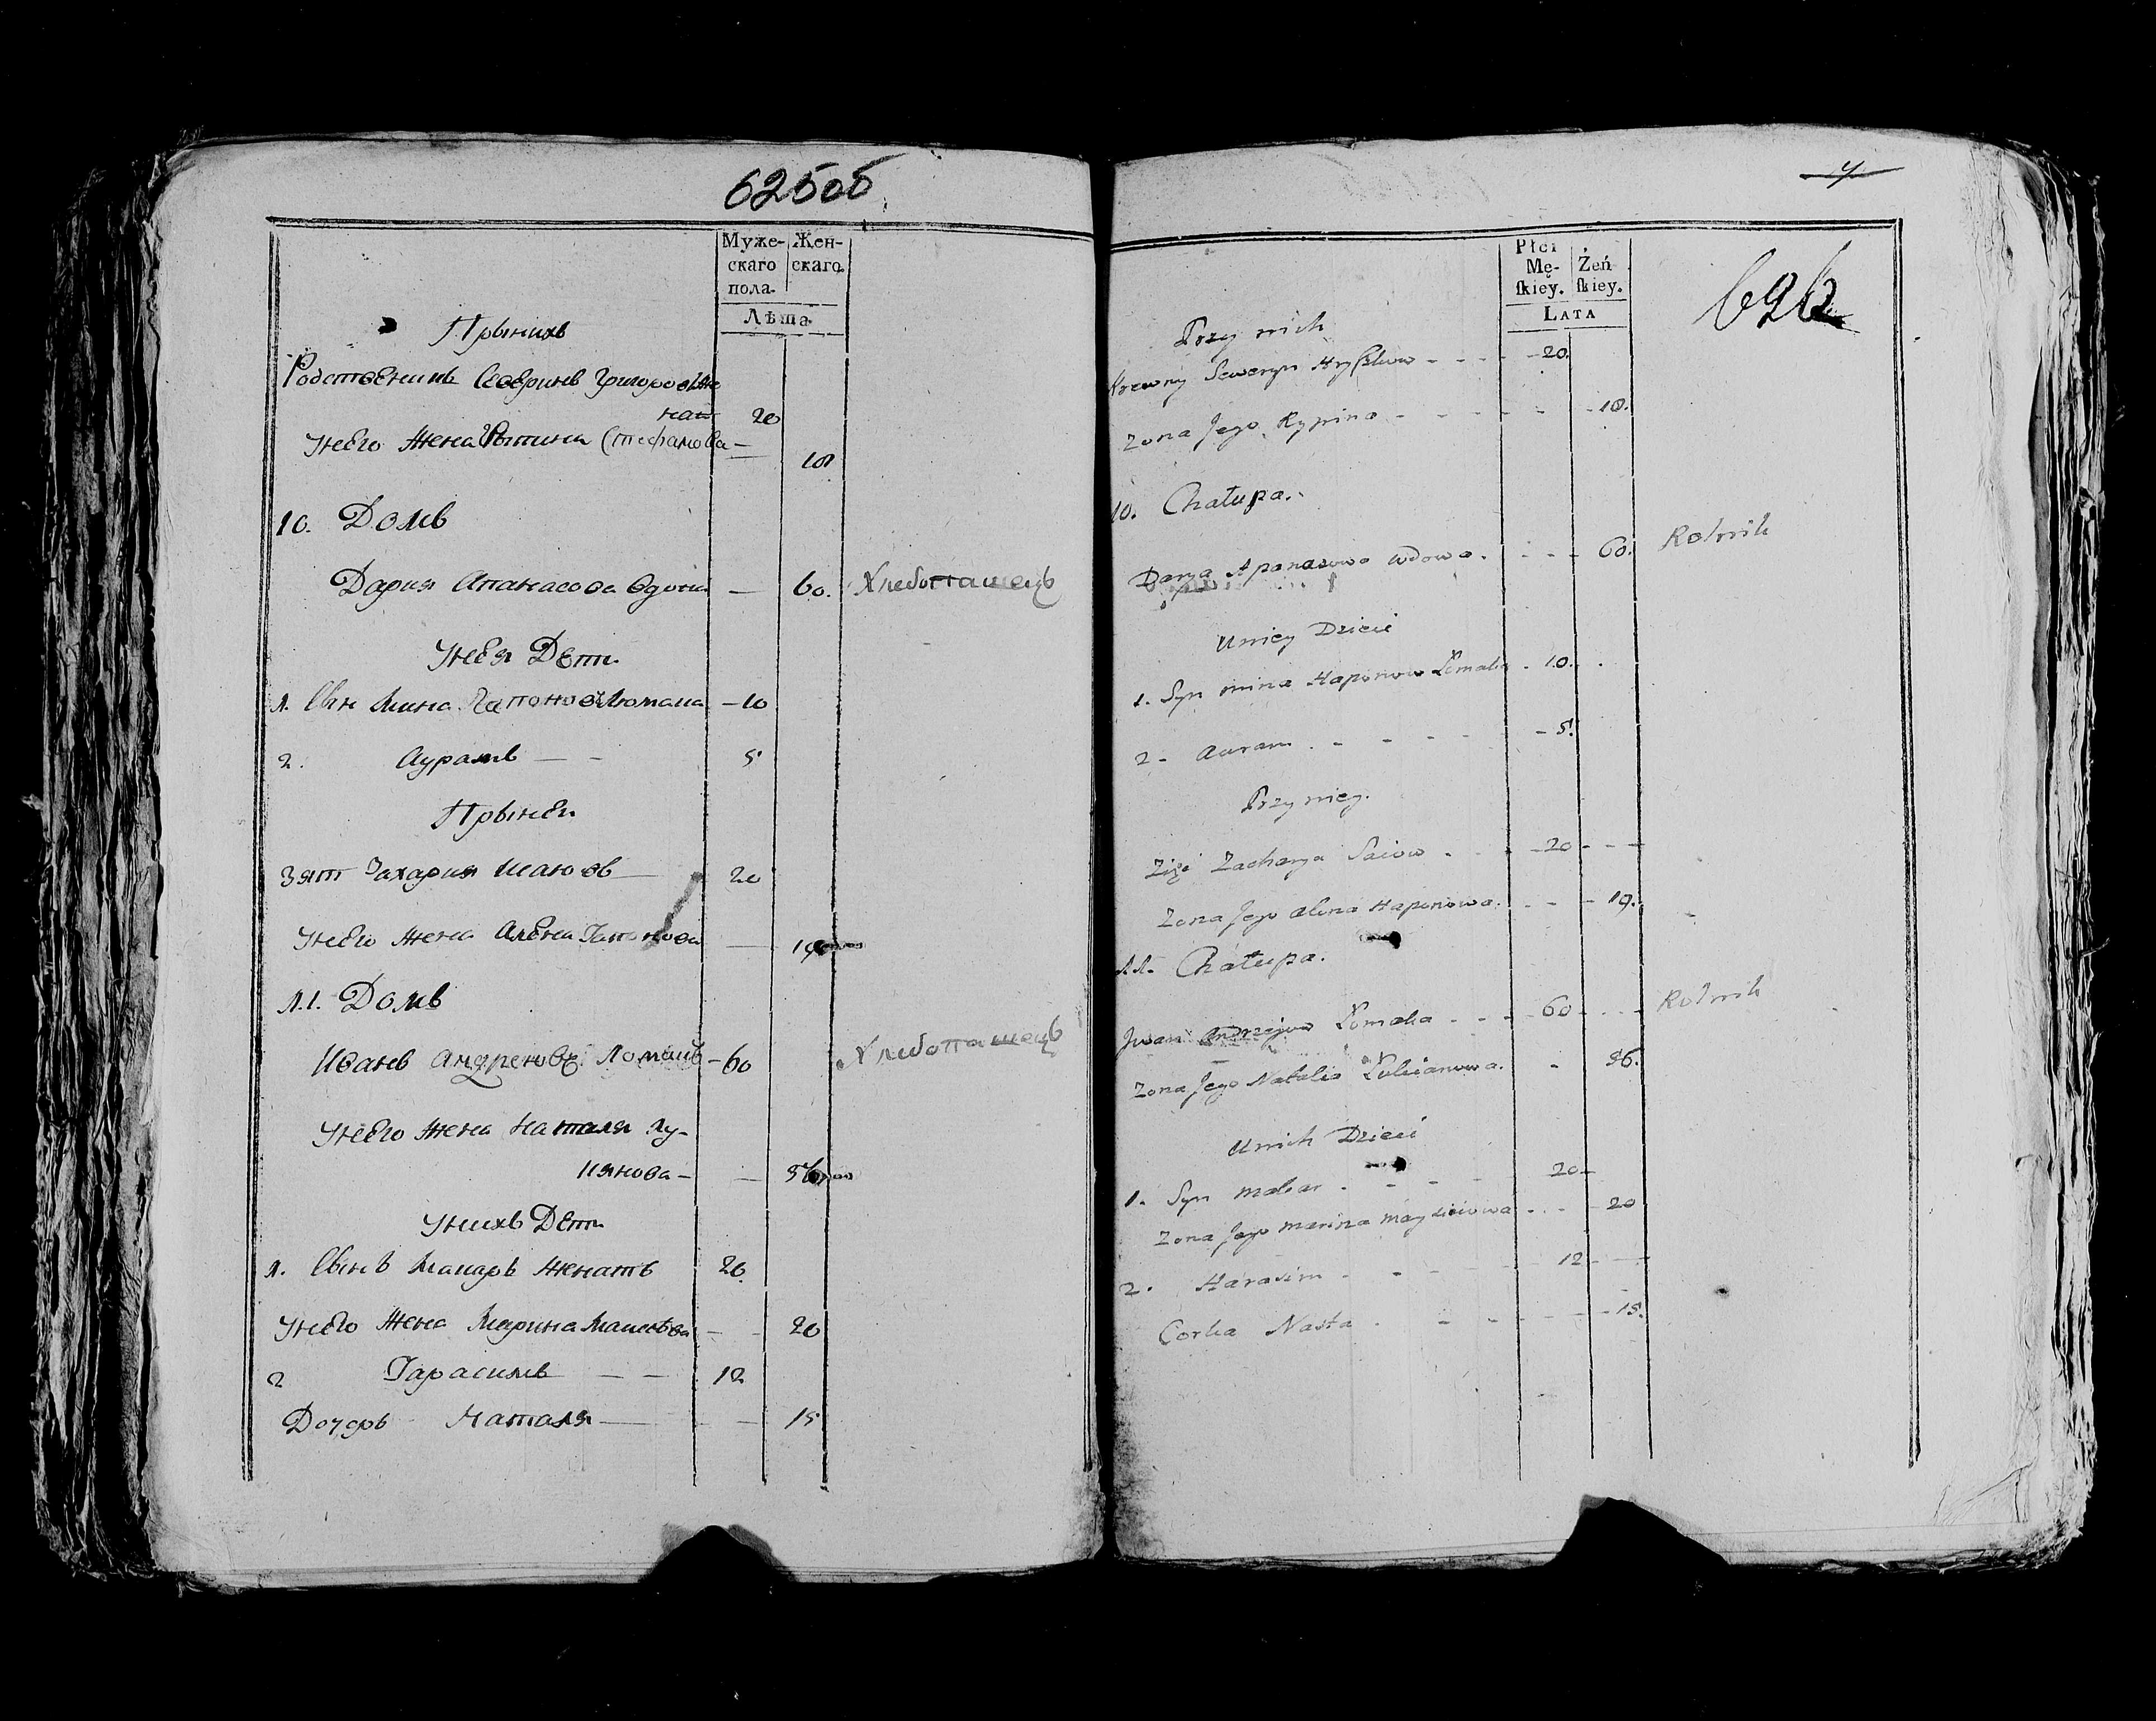 625об
Муже- Жен-
скаго скаго.
пола.
Лѣта
Прынихъ
Родственникъ Северинъ Григоровъ же
нат 20
Унего жена Стефанова — 18
10. Домъ
Дария Апанасова вдова — 60. Хлебопашецъ
Унея Дети
1. Сын Мина Гапоновъ Ломака — 10
2. Аурамъ — - 5
Прыней
Зят Захария Исаковъ — 20
Унего жена Алена Гапонова — 19
11. Домъ
Иванъ Андреновъ Ломака — 60 Хлебопашецъ
Унего жена Наталя Лу-
кянова — — 56
Унихъ Дети
1. Сынъ Макаръ женатъ 20.
Унего жена Марина — 20
2 Гарасимъ — — 12
Дочерь Наталя — — 15
4
626
Płci
Mę- Żeń
skiey. skiey.
LATA
Przy nich
Krewny Seweryn - - - - 20.
Zona Jego - - - - - 18.
10. Chałupa.
Darya Apanasowa wdowa. - - - 60. Rolnik
U niey Dzieci
1. Syn Mina Haponow Łomaka - 10. .
2 - Auram. - - - - - 5.
Przy niey.
Zięć Zacharya - 20 - - -
Zona Jego Alena Haponowa. - - - 19.
11. Chałupa.
Iwan Andrzejow Łomaka - - - 60 - - - Rolnik
Zona Jego Natalia Łukianowa. - 56.
U nich Dzieci
1. Syn Makar . - - - 20 -
Zona Jego Marina - - - 20
2. Harasim - - - - 12 - -
Corka Nasta . - - - - 15.